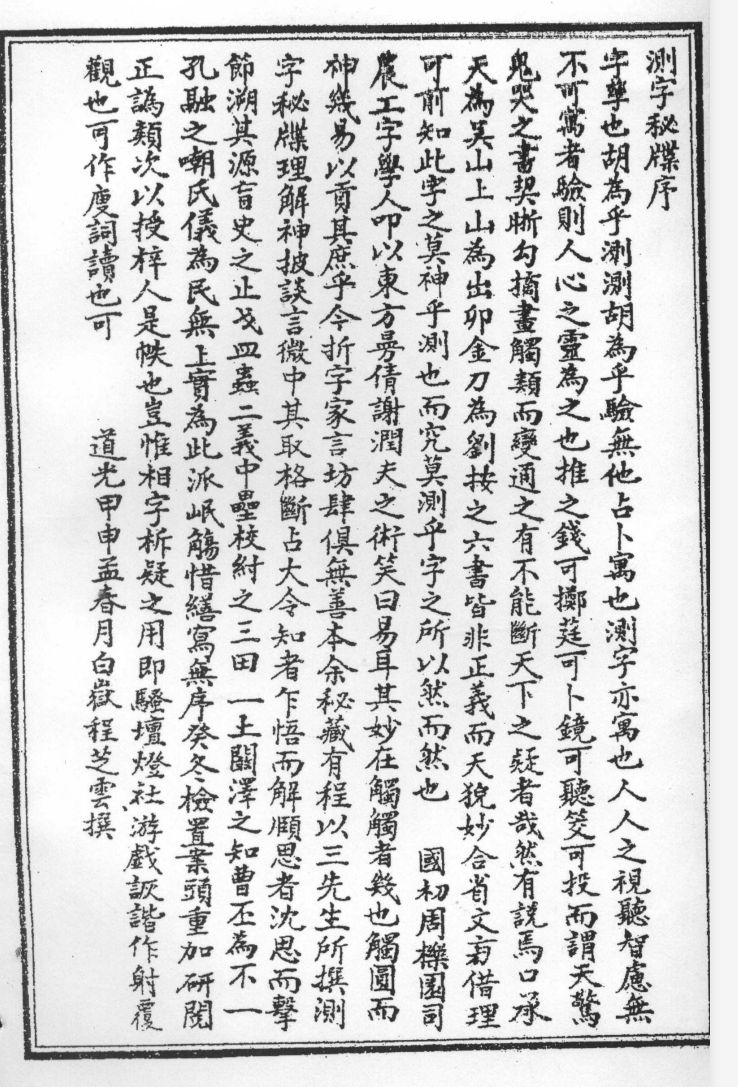 測字秘牒序
字孳也胡為乎測測胡為乎驗無他占卜寓也測字亦寓也人人之視聽智慮無
不可寓者驗則人心之靈為之也推之錢可擲莛可卜鏡可聽筊可投而謂天驚
鬼哭之書契晰勾摘畫觸類而變通之有不能斷天下之疑者哉然有說焉口承
天為吴山上山為出卯金刀為劉按之六書皆非正義而天猊妙合省文叚借理
可前知此字之莫神乎測也而究莫測乎字之所以然而然也 國初周櫟園司
農工字學人叩以東方曼倩謝潤夫之術笑曰易耳其妙在觸觸者幾也觸圓而
神幾易以貢其庶乎今折字家言坊肆俱無善本余秘藏有程以三先生所撰測
字秘牒理解神披談言微中其取格斷占大令知者乍悟而解頤思者沈思而擊
節溯其源盲史之止戈皿蟲二義中壘校尉之三田一土闞澤之知曹丕為不一
孔融之嘲氏儀為民無上實為此派岷觴惜繕寫無序癸冬檢置案頭重加研閱
正譌類次以授梓人是帙也豈惟相字析疑之用即騷壇燈社游戲詼諧作射覆
觀也可作廋詞讀也可
道光甲申孟春月白嶽程芝雲撰